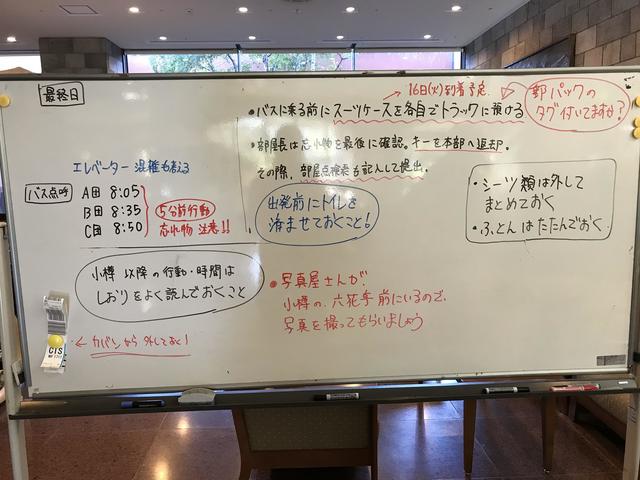 最終日
16日(火)到着予定
・バスに乗る前にスーツケースを各自でトラックに預ける
郵パックの
タグ付いてますか?
・部屋長は忘れ物を最後に確認。キーを本部へ返却。
その際、部屋点検表も記入して提出。
エレベーター 混雑も考える
バス点呼
A団 8:05
B団 8:35
C団 8:50
5分前行動
忘れ物 注意!!
出発前にトイレを
済ませておくこと!
・シーツ類は外して
まとめておく
・ふとんはたたんでおく
小樽以降の行動・時間は
しおりをよく読んでおくこと
・写真屋さんが
小樽の、六花亭前にいるので、
写真を撮ってもらいましょう
CTS
← カバンから外しておく!